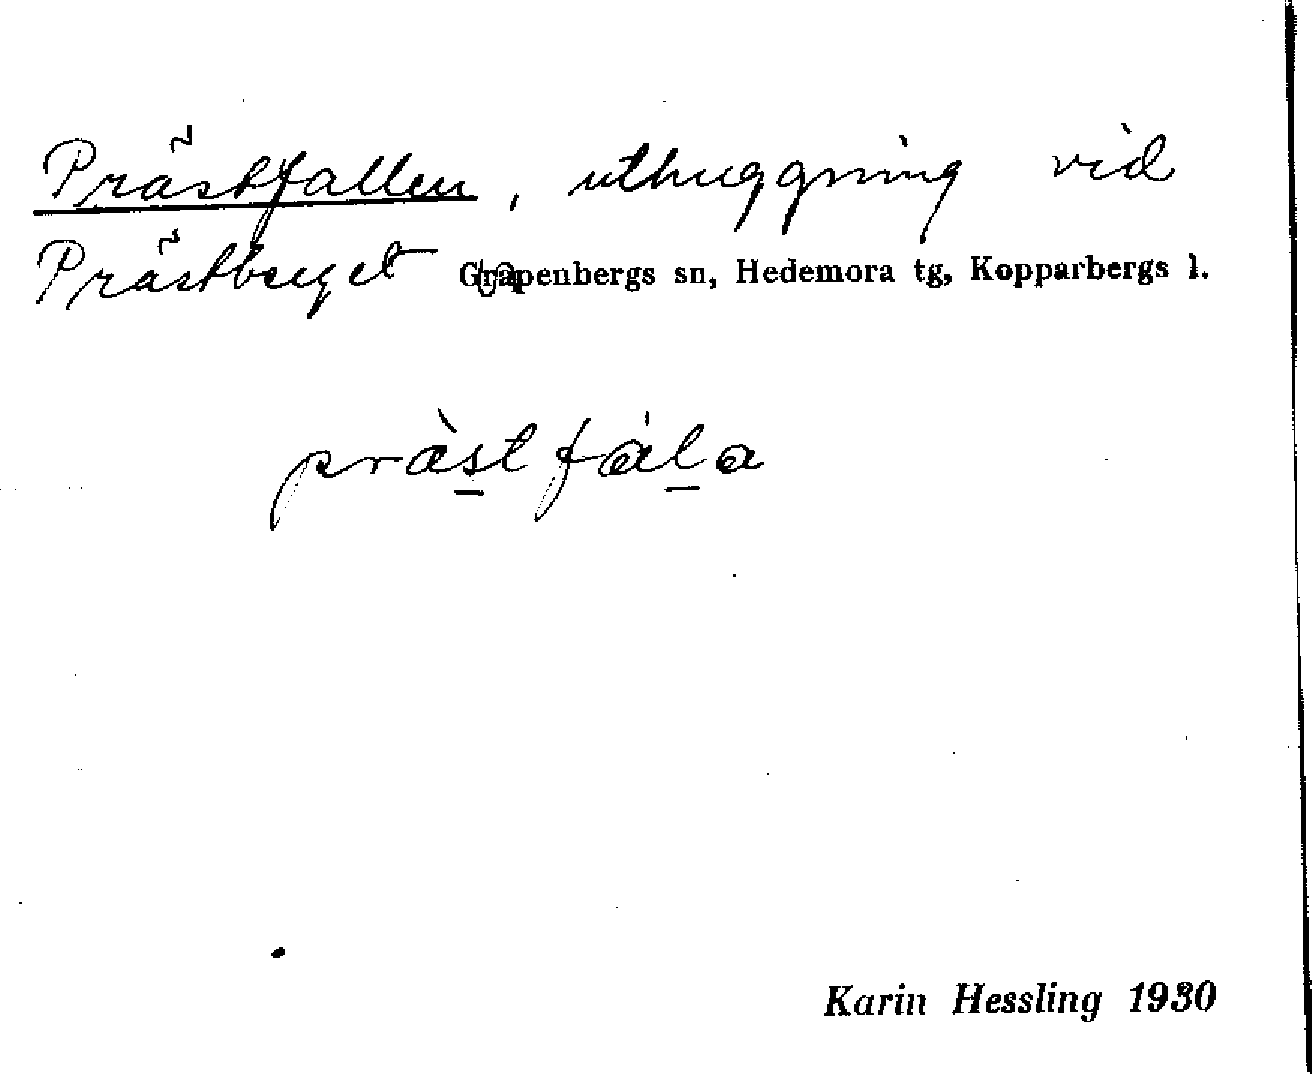 Prästfallen, uthuggning vid
Prästberget Grapenbergs sn, Hedemora tg, Kopparbergs l.
prä̀stfála
Karin Hessling 1930